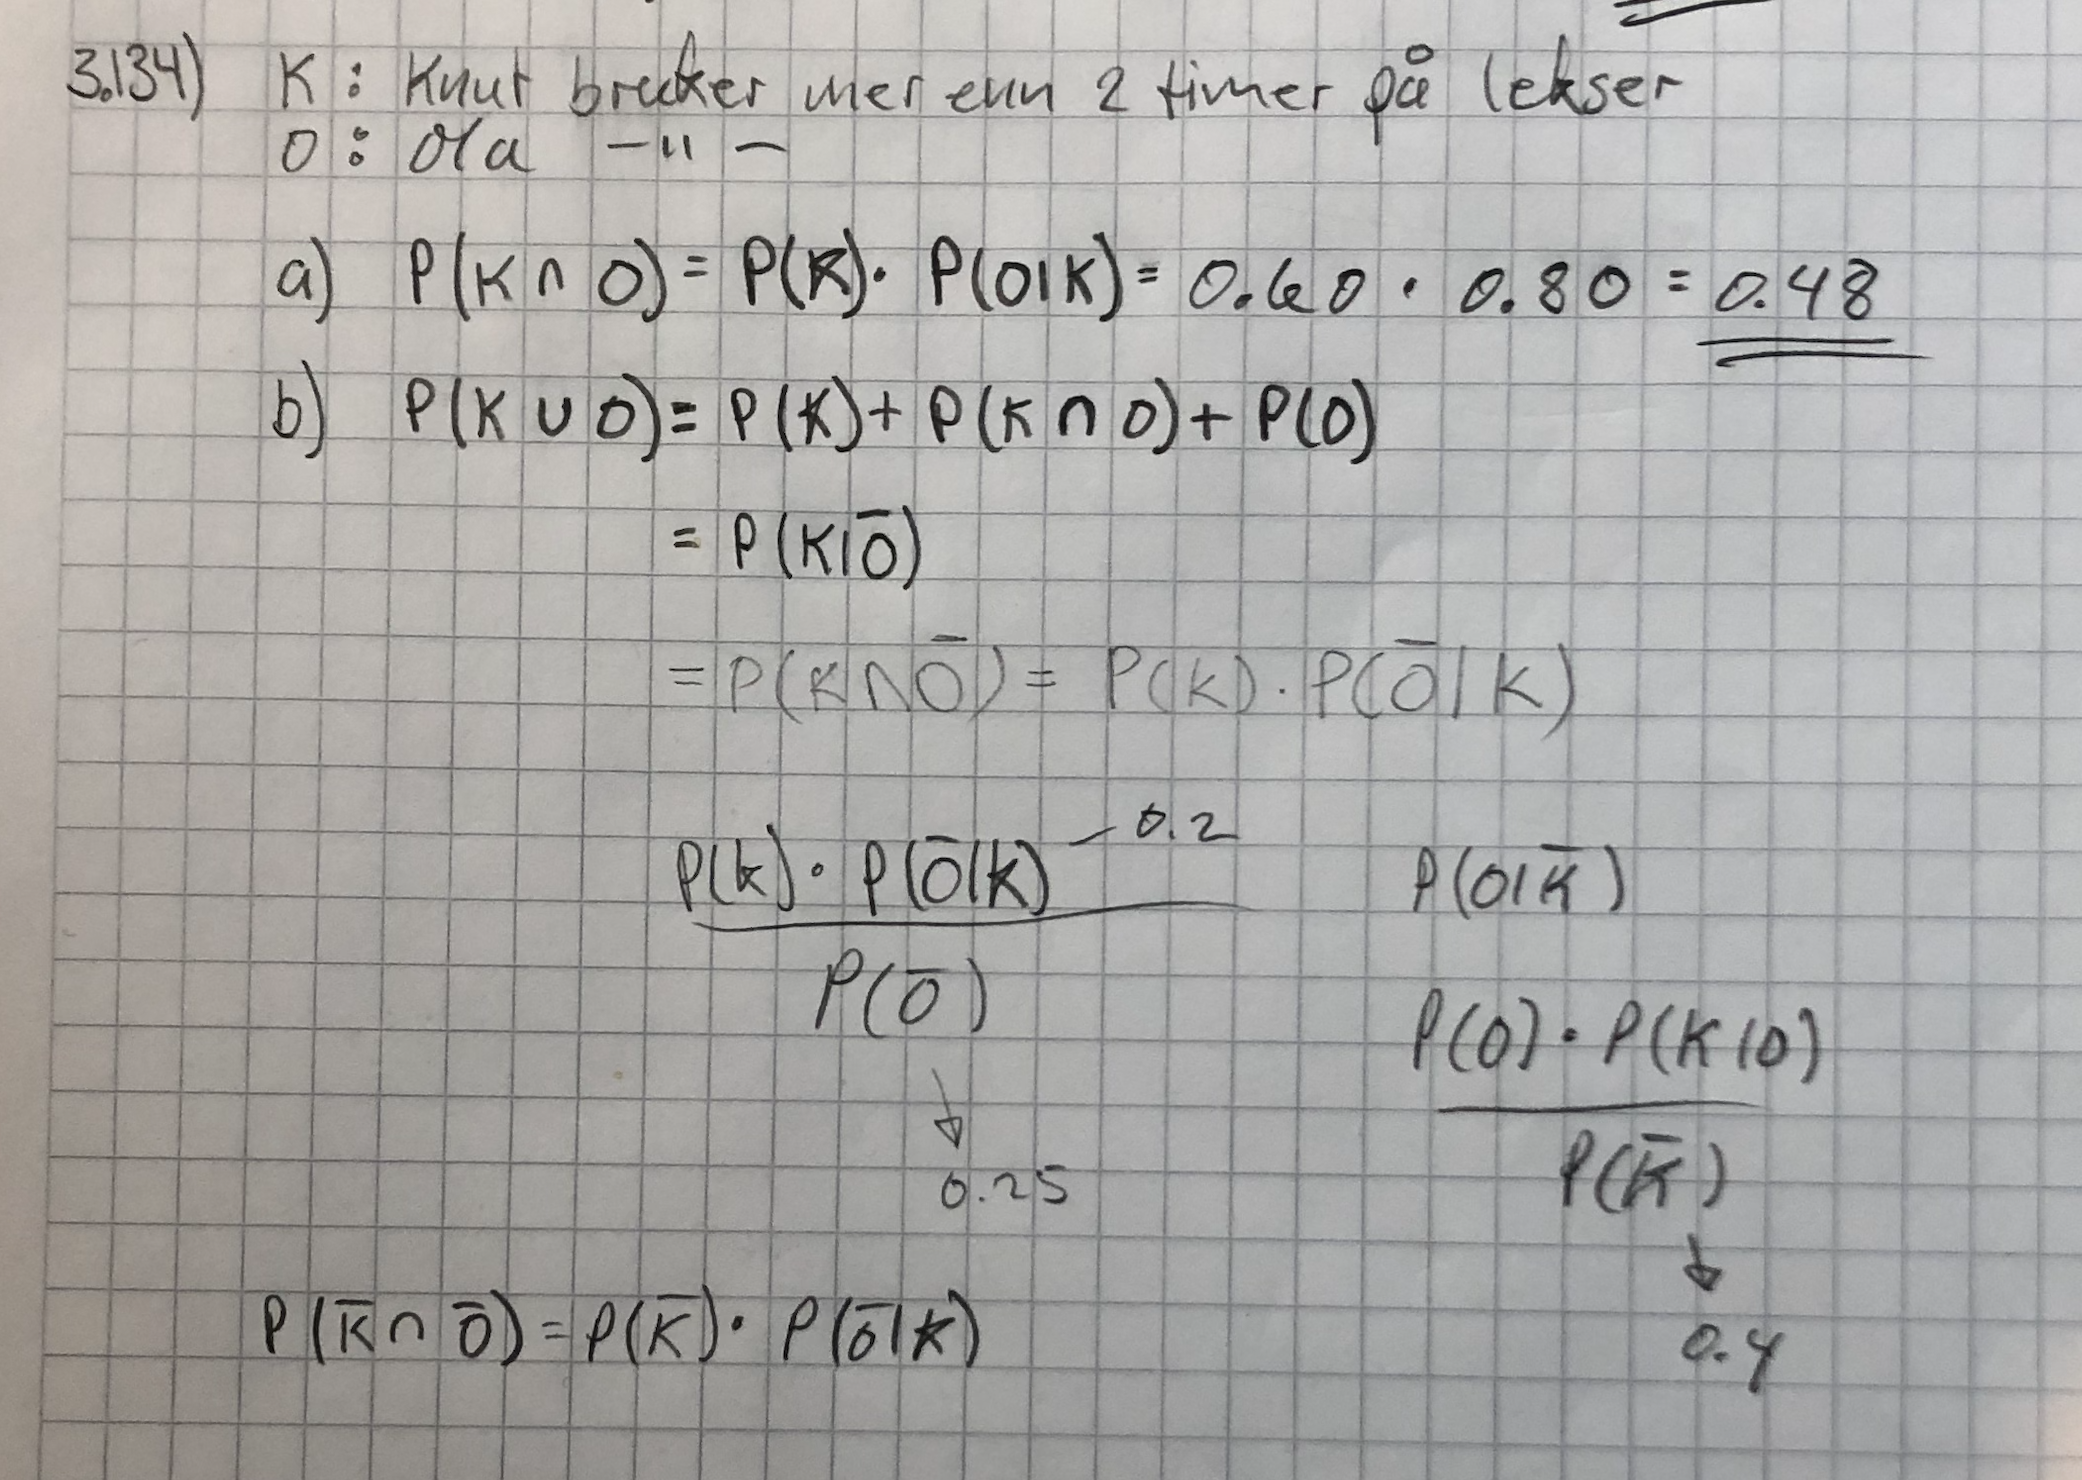 3.134) K : Knut bruker mer enn 2 timer på lekser
O : Ola —"—
a) P(K ∩ O) = P(K) · P(O|K) = 0.60 · 0.80 = 0.48
b) P(K ∪ O) = P(K) + P(K ∩ O) + P(O)
= P(K|O̅)
= P(K ∩ O̅) = P(K) · P(O̅|K)
P(K) · P(O̅|K) — 0.2
P(O̅)
↓
0.25
P(O|K̅)
P(O) · P(K|O)
P(K̅)
↓
0.4
P(K̅ ∩ O̅) = P(K̅) · P(O̅|K)